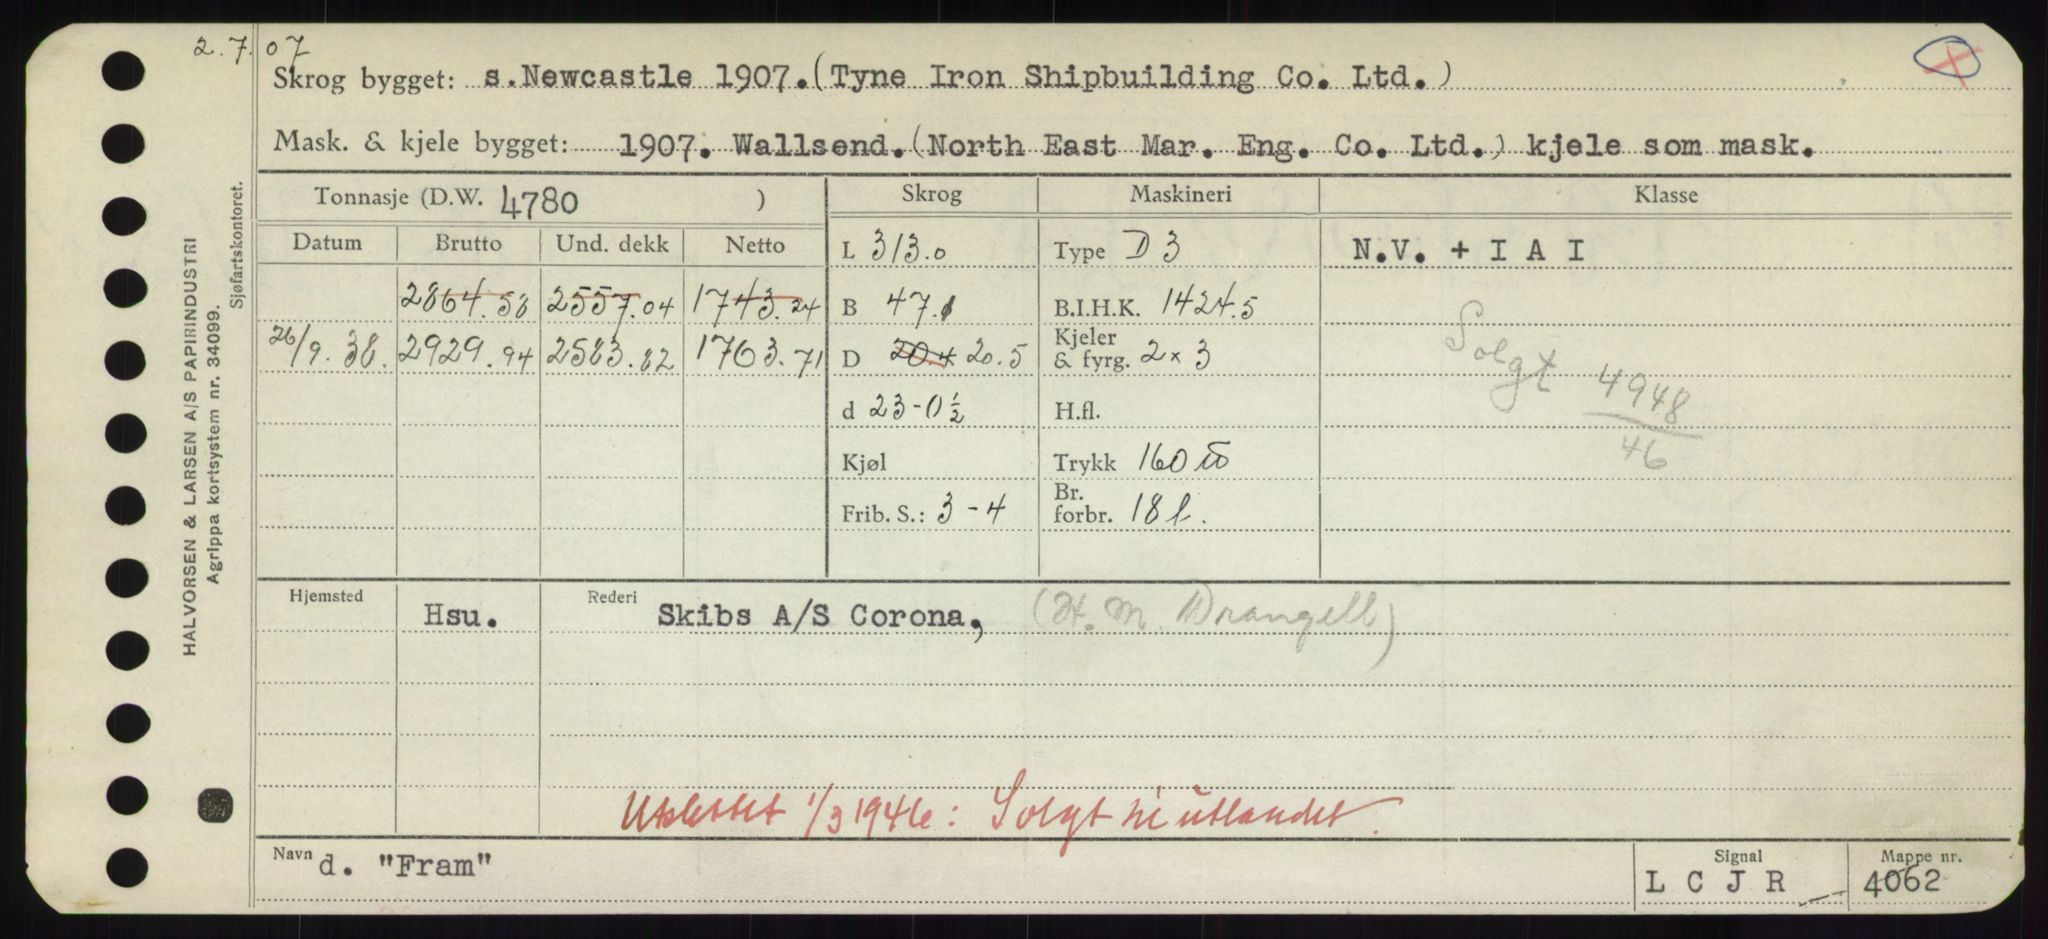 2.7.07
Skrog bygget: s. Newcastle 1907. (Tyne Iron Shipbuilding Co. Ltd.)
Mask. & kjele bygget: 1907. Wallsend. (North East Mar. Eng. Co. Ltd.) kjele som mask.
Tonnasje (D.W. 4780 )
Skrog
Maskineri
Klasse
Datum Brutto Und. dekk Netto
2864.58 2557.04 1743.24
26/9.38. 2929.94 2583.82 1763.71
L 313.0
B 47.1
D 20.4 20.5
d 23-0½
Kjøl
Frib. S.: 3-4
Type D 3
B.I.H.K. 1424.5
Kjeler
& fyrg. 2 x 3
H.fl.
Trykk 160 lb
Br.
forbr. 18 t.
N.V. + I A I
Solgt 4948/46
Hjemsted Hsu. Rederi Skibs A/S Corona, (H. M. Wrangell)
Utslettet 1/3 1946: Solgt til utlandet.
Navn d. "Fram"
Signal
L C J R
Mappe nr.
4062
HALVORSEN & LARSEN A/S PAPIRINDUSTRI
Agrippa kortsystem nr. 34099.
Sjøfartskontoret.